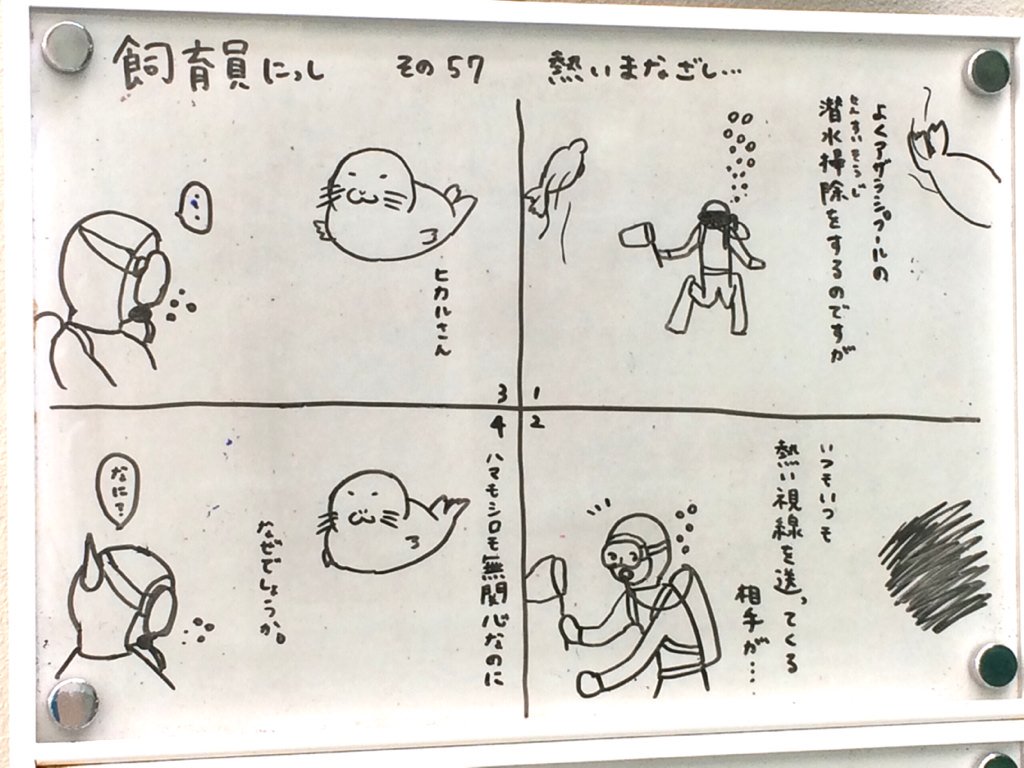 飼育員にっし その57 熱いまなざし…
1
よくアザラシプールの、
潜水掃除をするのですが
せんすいそうじ
2
いつもいつも
熱い視線を送ってくる
相手が…
3
…
ヒカルさん
4
ハマモシロモ無関心なのに
なぜでしょうか。
なに?